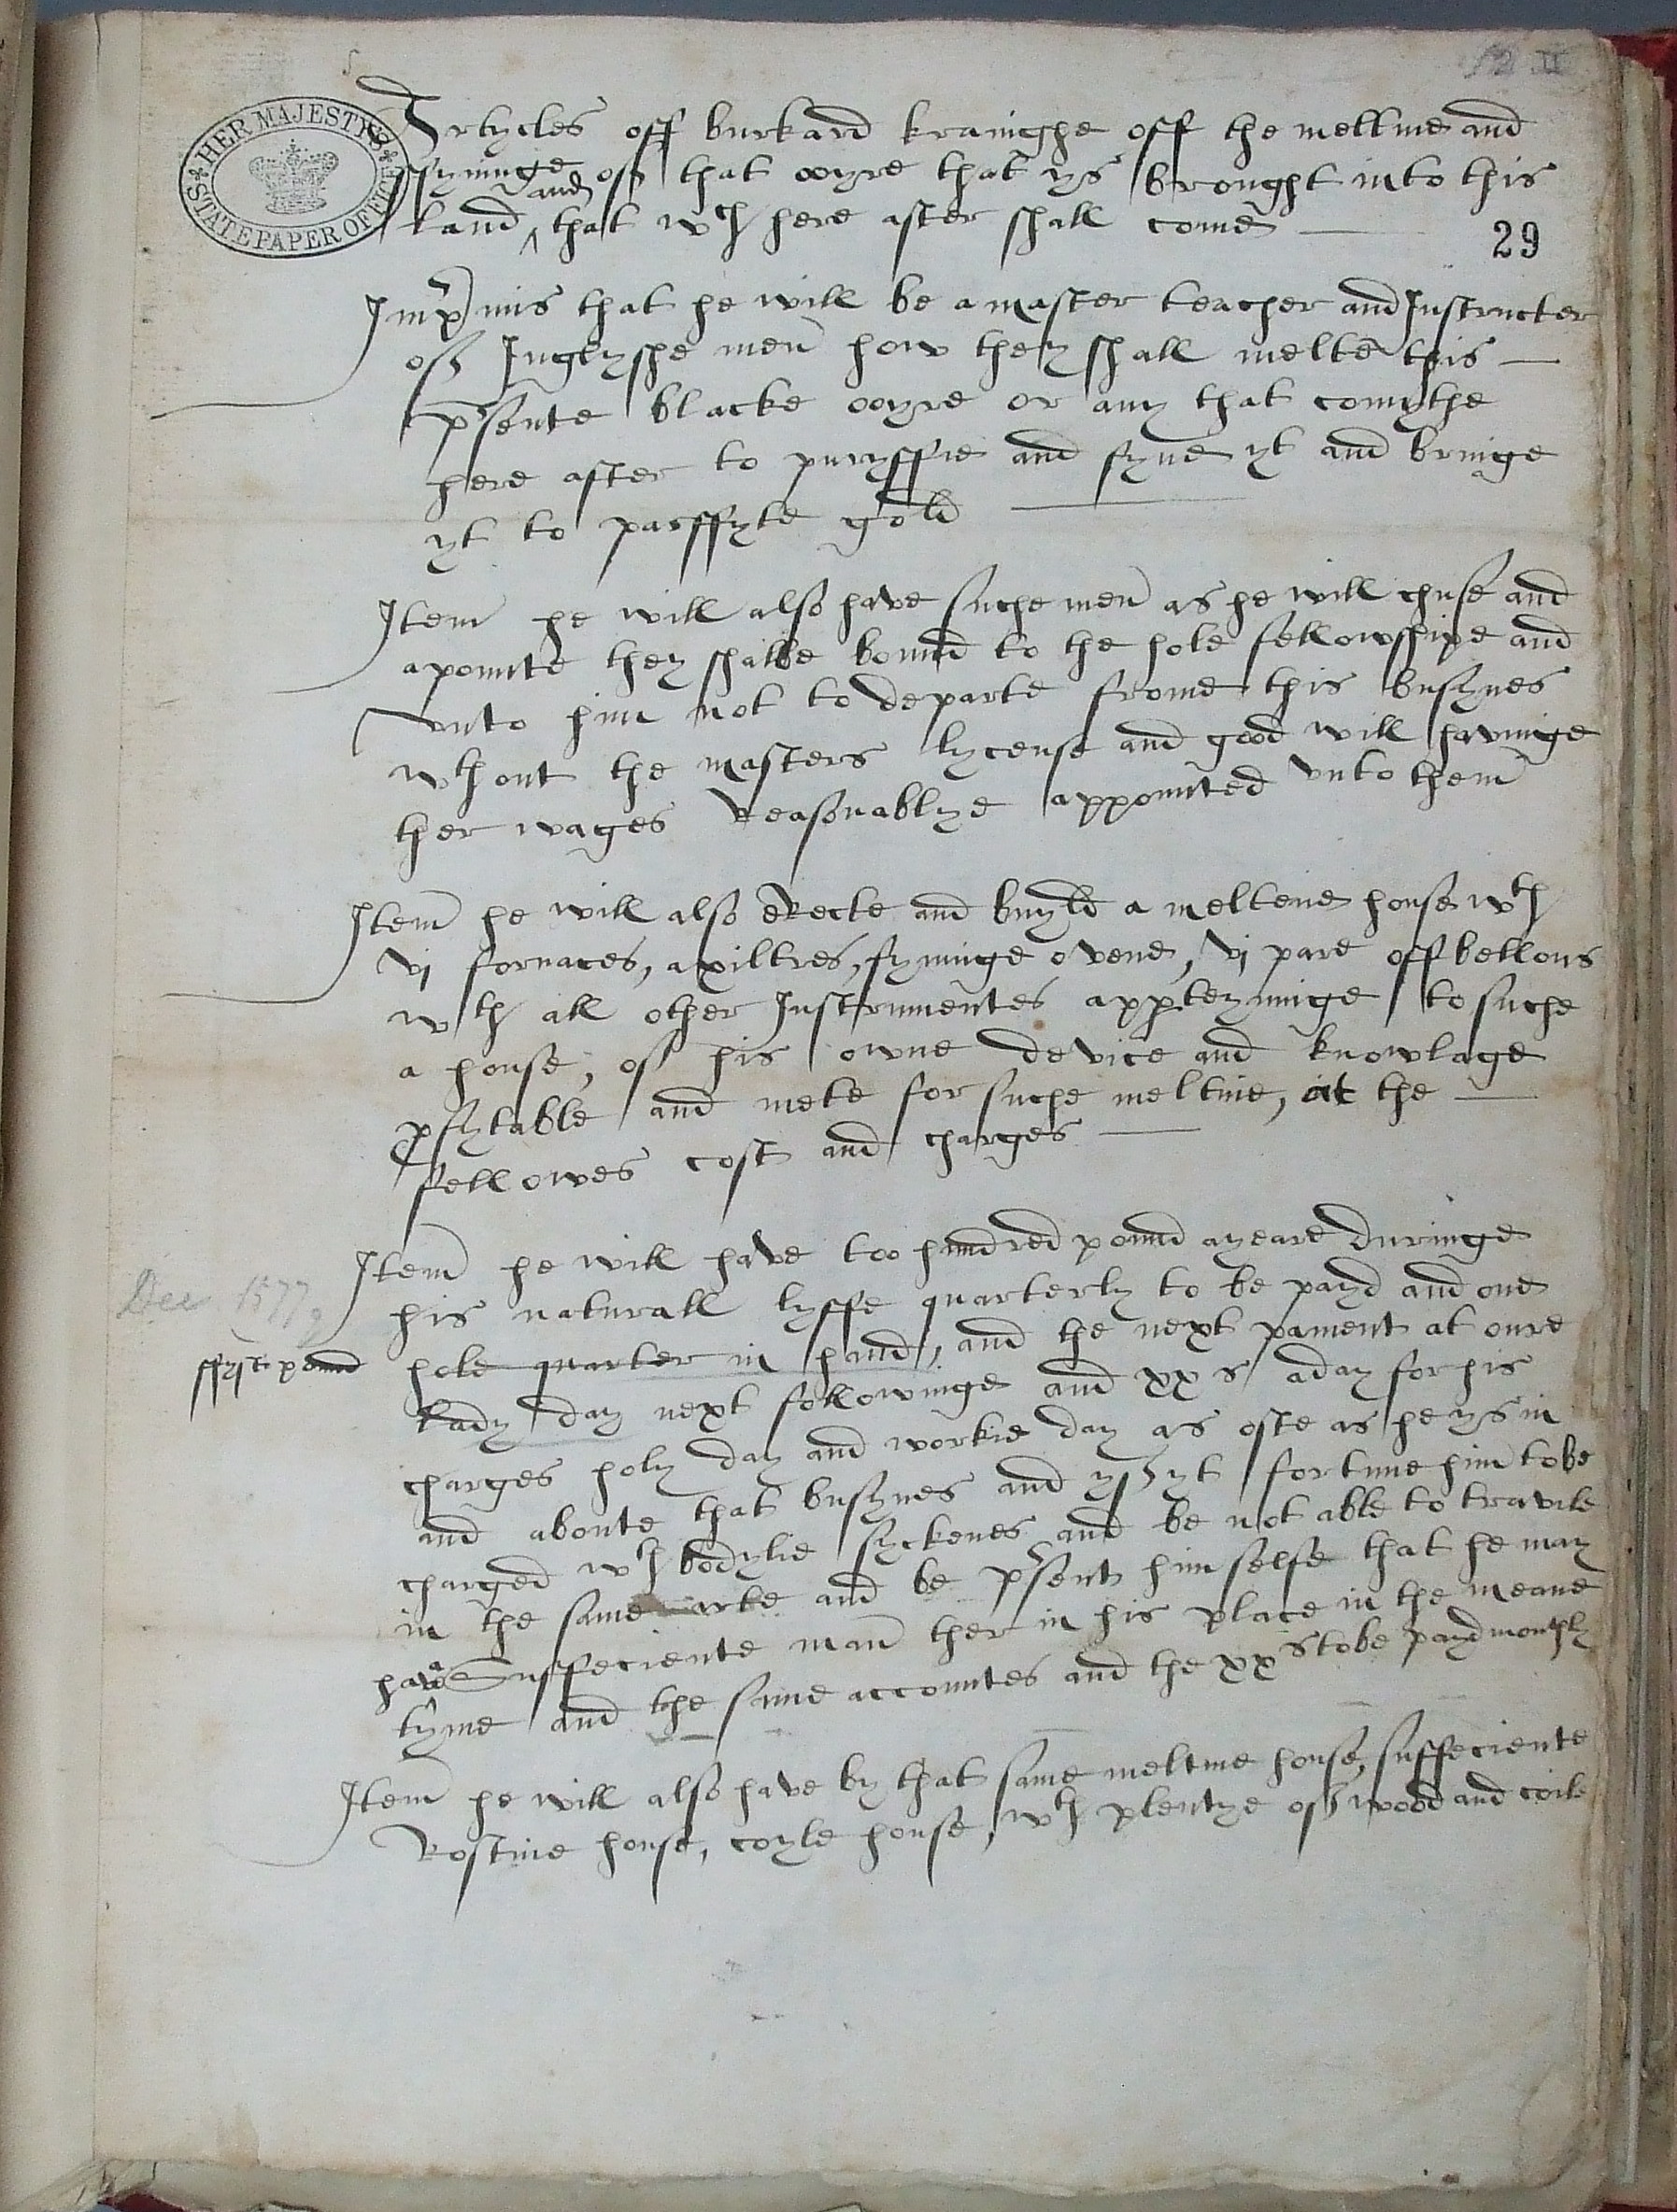 12 II
HER MAJESTY'S
STATE PAPER OFFICE
Artycles off burkard krainghe off the meltine and
ffyninge off that owyre that ys brought into this
and
land ^ that wch here after shall come
29
Imprimis that he will be a master teacher and Instructer
off Inglyshe men how they shall melte this
psente blacke owyre or any that comythe
here after to puryffie and fyne yt and bringe
yt to parffyte gold
Item he will also have suche men as he will chuse and
apointe they shalbe bound to the hole fellowshipe and
unto him not to departe frome this busynes
wthout the masters lycense and good will havinge
ther wages Reasonablye appointed unto them
Item he will also erecte and buyld a meltene house wth
vj fornaces, axiltres, fyninge ovene, vj pare off bellous
wth all other Instrumentes appteyninge to suche
a house, off his owne device and knowlage
pfytable and mete for suche meltine, at the
fellowes cost and charges
Item he will have too hundred pound a yeare duringe
Dec 1577
his naturall lyffe quarterly to be payd and one
ffyst pound
hole quarter in hand, and the next pament at oure
Lady day next followinge and xx s a day for his
charges holy day and workie day as ofte as he ys in
and aboute that busynes and yff yt fortune him to be
charged wth bodylie syckenes and be not able to travile
in the same arte and be psent himselfe that he may
have a Suffeciente man ther in his place in the meane
tyme and the same accountes and the xx s to be payd monthly
Item he will also have by that same meltine house, suffeciente
Rostine house, coyle house, wth plentye off wood and coile